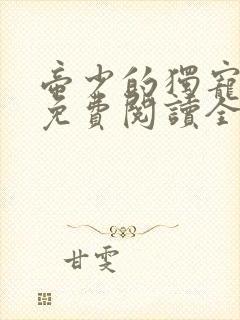 帝少的獨寵
免費閱讀全
甘雯